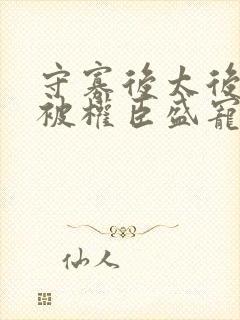 守寡後太後
被權臣盛寵
仙人